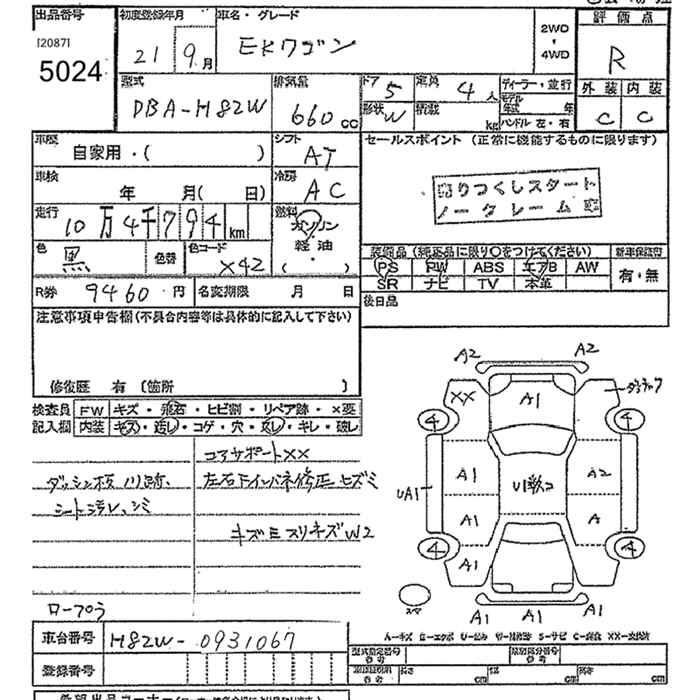 出品番号 初度登録年月 車名・グレード 評価点
[2087]
5024
21 9月 EKワゴン 2WD・4WD R
型式 排気量 ドア 5 定員 4人 ディーラー・並行 外装 内装
DBA-H82W 660cc 形状 W 積載 kg モデル年式 年 ハンドル 左・右 C C
車歴 シフト セールスポイント (正常に機能するものに限ります)
自家用・( ) AT
車検 冷房
年 月( 日) AC
売りつくしスタート
ノークレーム
走行 燃料
10万4千794km ガソリン・軽油・( )
色 黒 色替 色コード X42
装備品 (純正品に限り○をつけてください) 新車保証書
PS PW ABS エアB AW 有・無
SR ナビ TV 本革
R券 9460円 名変期限 月 日 後日品
注意事項申告欄(不具合内容等は具体的に記入して下さい)
修復歴 有 (箇所 )
検査員 FW キズ・飛石・ヒビ割・リペア跡・×要
記入欄 内装 キズ・汚レ・コゲ・穴・スレ・キレ・破レ
コアサポートXX
ダッシュ板ノリ跡、 左右ドインパネ修正ヒズミ
シート汚レ、シミ
キズミスリキズW2
A2 A2
XX A1
4 4
A1 A2
UA1
A1 A
4 4
スペア
A1 A1 A1
車台番号 H82W-0931067
登録番号
型式指定番号 参考 類別区分番号 参考
長さ cm 幅 cm 高さ cm